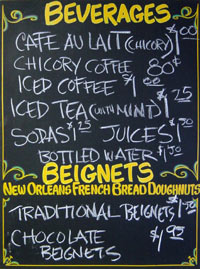 BEVERAGES
CAFE AU LAIT (CHICORY) $1.00
CHICORY COFFEE 80¢
ICED COFFEE $1.00
ICED TEA (WITH MINT) $1.25
SODAS $1.25 JUICES $1.50
BOTTLED WATER $1.50
BEIGNETS
NEW ORLEANS FRENCH BREAD DOUGHNUTS
TRADITIONAL BEIGNETS $1.50
CHOCOLATE $1.95
BEIGNETS